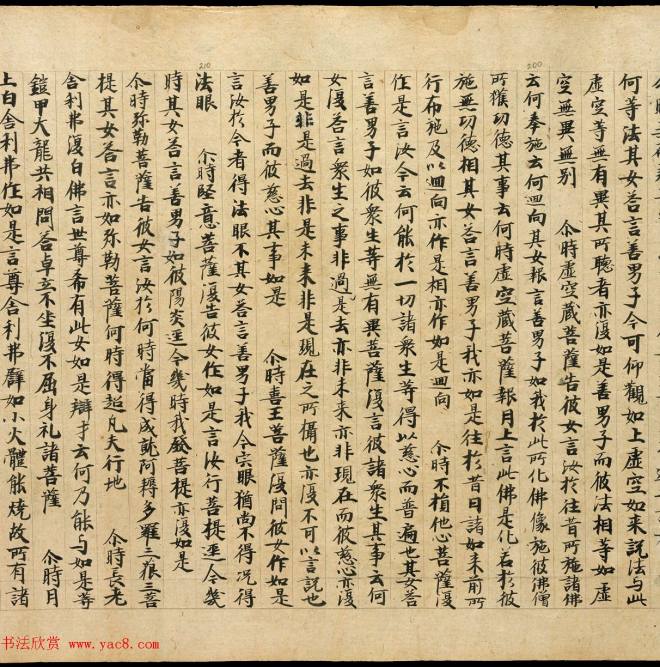 何等法其女答言善男子今可仰觀如上虛空如来説法与此
虛空等無有異其所聽者亦復如是善男子而彼法相等如虛
空無異無别 尒時虛空藏菩薩告彼女言汝於往昔所施諸佛
云何奉施云何迴向其女報言善男子如我於此所化佛像施彼佛僧
所獲功德其事云何時虛空藏菩薩報月上言此佛是化若於彼
施無功德相其女答言善男子我亦如是往於昔日諸如来前所
行布施及以迴向亦作是相亦作如是迴向 尒時不捨他心菩薩復
作是言汝今云何能於一切諸衆生等得以慈心而普遍也其女荅
言善男子如彼衆生等無有異菩薩復言彼諸衆生其事云何
女復荅言衆生之事非過是去亦非未来亦非現在而彼慈亦復
如是非是過去非是未来非是現在之所攝也亦復不可以言説也
善男子而彼慈心其事如是 尒時喜王菩薩復問彼女作如是
言汝於今者得法眼不其女荅言善男子我今宍眼猶尚不得況得
法眼 尒時堅意菩薩復告彼女作如是言汝行菩提逕今幾
時其女荅言善男子如彼陽炎逕今幾時我發菩提亦復如是
尒時弥勒菩薩告彼女言汝於何時當得成就阿耨多羅三藐三菩
提其女荅言亦如弥勒菩薩何時得超凡夫行地 尒時長老
舍利弗復白佛言世尊希有此女如是辯才云何乃能与如是等
鎧甲大龍共相問荅卓立不坐復不屈身礼諸菩薩 尒時月
上白舍利弗作如是言尊舍利弗譬如小火體能燒故所有諸
210
200
书法欣赏 www.yac8.com